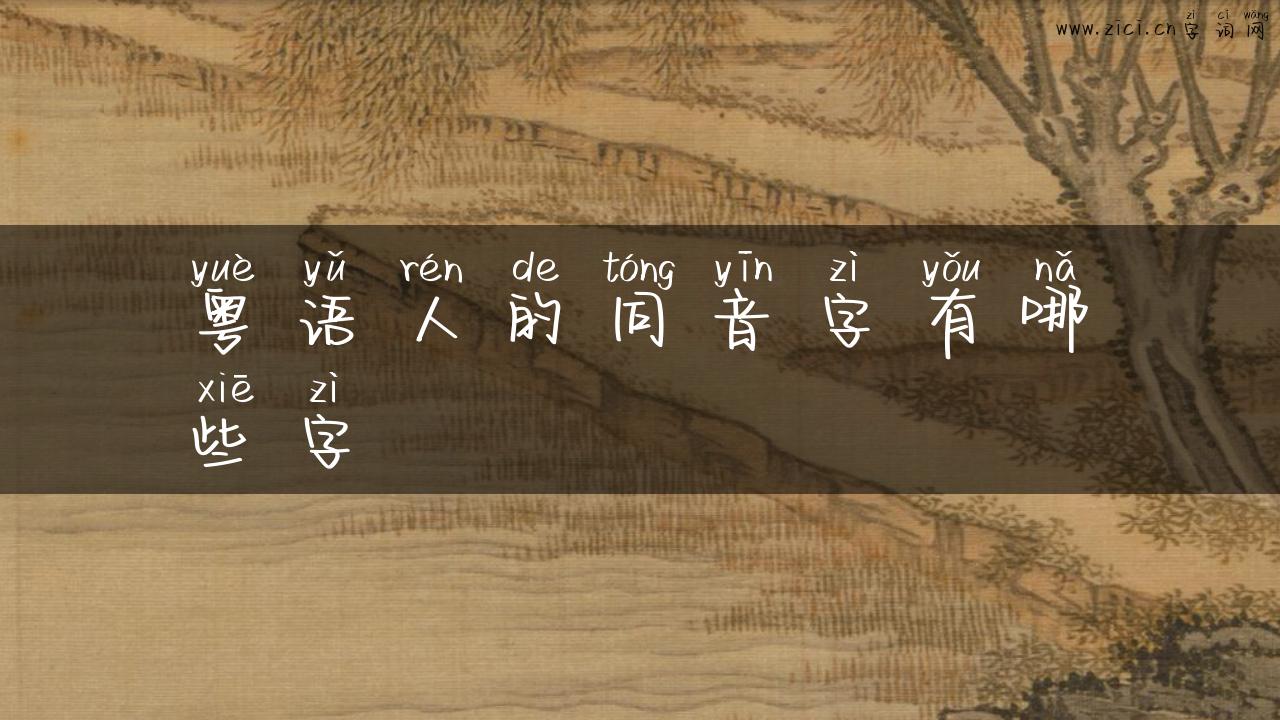 zì cí wǎng
www.zici.cn字词网
yuè yǔ rén de tóng yīn zì yǒu nǎ
粤语人的同音字有哪
xiē zì
些字